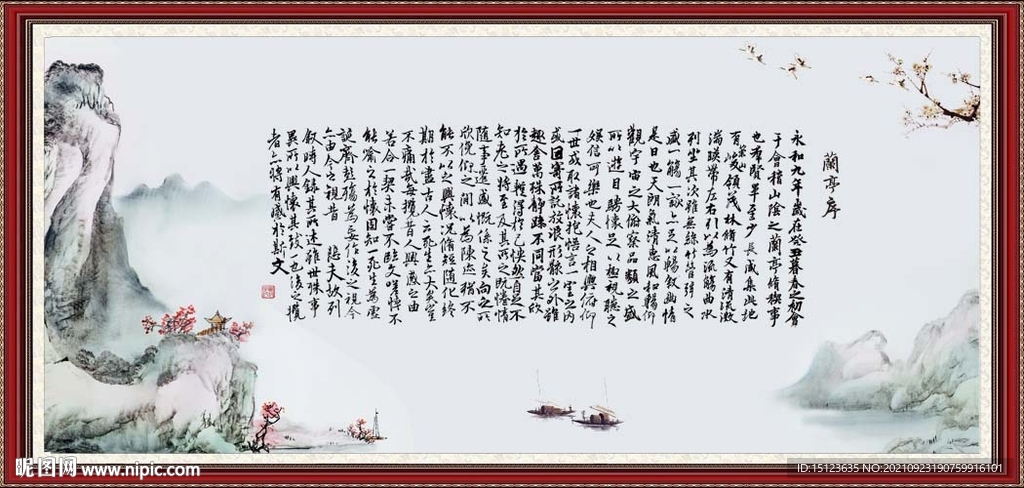 蘭亭序
永和九年歲在癸丑暮春之初會
于會稽山陰之蘭亭脩稧事
也羣賢畢至少長咸集此地
有崇山峻領茂林脩竹又有清流激
湍暎帶左右引以為流觴曲水
列坐其次雖無絲竹管弦之
盛一觴一詠上足以暢叙幽情
是日也天朗氣清惠風和暢仰
觀宇宙之大俯察品類之盛
所以遊目騁懷足以極視聽之
娛信可樂也夫人之相與俯仰
一世或取諸懷抱悟言一室之內
或因寄所託放浪形骸之外雖
趣舍萬殊靜躁不同當其欣
於所遇輕得於己快然自足不
知老之將至及其所之既惓情
隨事遷感慨係之矣向之所
欣俛仰之間以為陳迹猶不
能不以之興懷況脩短隨化終
期於盡古人云死生亦大矣豈
不痛哉每攬昔人興感之由
若合一契未嘗不臨文嗟悼不
能喻之於懷固知一死生為虛
誕齊彭殤為妄作後之視今
亦由今之視昔悲夫故列
叙時人錄其所述雖世殊事
異所以興懷其致一也後之攬
者亦將有感於斯文
昵图网 www.nipic.com
ID:15123635 NO:20210923190759916101